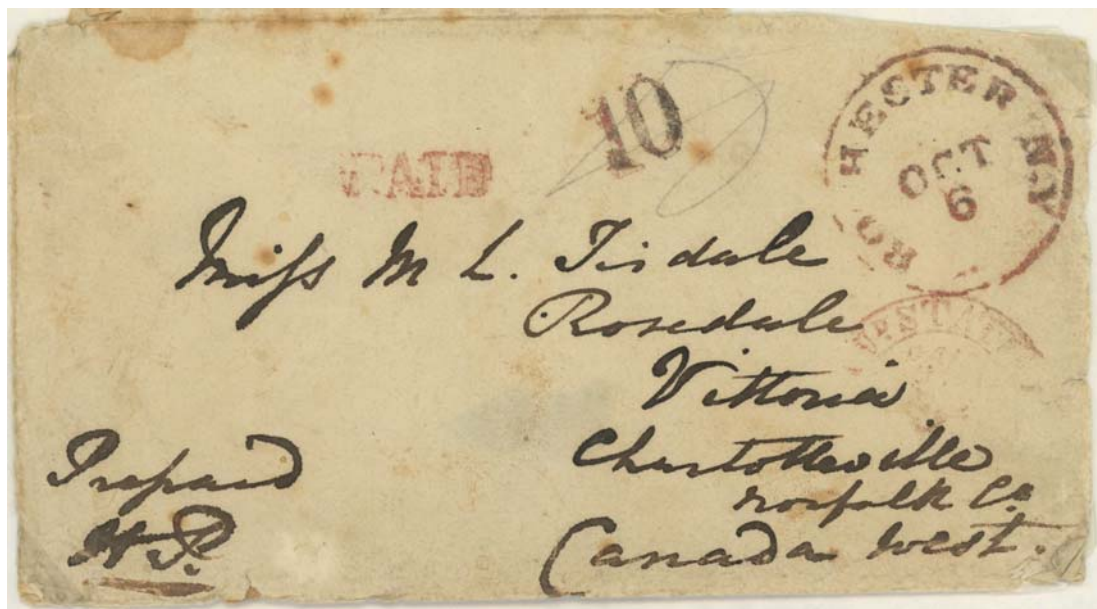 PAID
10
ROCHESTER N.Y
OCT
6
Miss M L. Tisdale
Rosedale
Vittoria
Charlotteville
Norfolk Co.
Canada West.
Prepaid